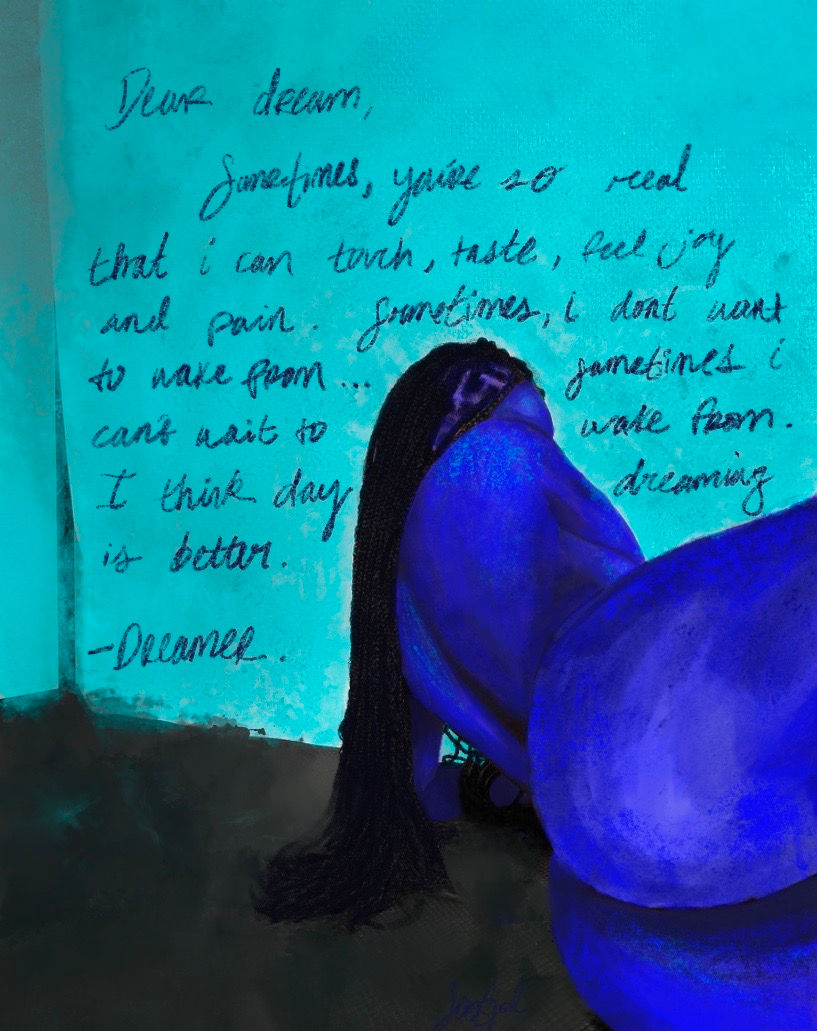 Dear dream,
Sometimes, you're so real
that i can touch, taste, feel joy
and pain. Sometimes, i dont want
to wake from... sometimes i
can't wait to wake from.
I think day dreaming
is better.
-Dreamer.